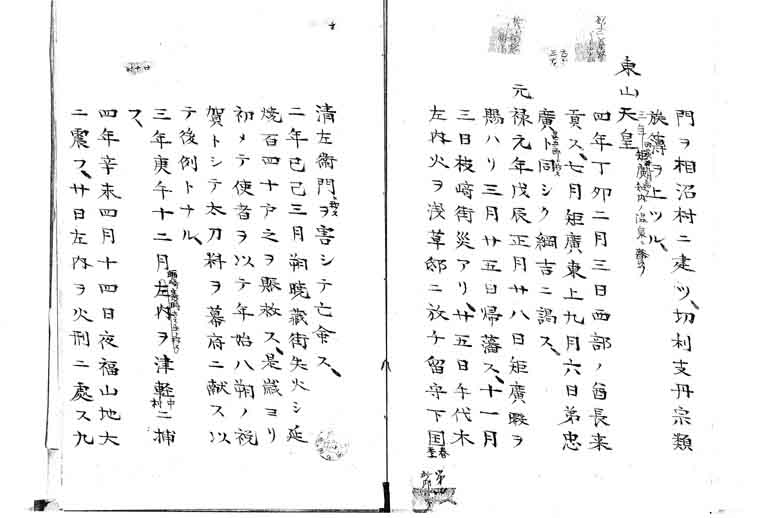 門ヲ相沼村ニ建ツ、切利支丹宗類
族簿ヲ上ツル、
東山天皇
四年丁卯二月三日西部ノ酋長来
貢ス、七月矩廣東上九月六日弟忠
廣ト同シク綱吉ニ謁ス、
元禄元年戊辰正月廿八日矩廣暇ヲ
賜ハリ三月廿五日帰藩ス、十一月
三日枝﨑街災アリ、廿五日午代木
左内火ヲ浅草邸ニ放チ留守下国
清左衛門ヲ害シテ亡命ス、
二年己巳三月朔暁蔵街失火シ延
焼百四十戸之ヲ賑救ス、是歳ヨリ
初メテ使者ヲ以テ年始八朔ノ祝
賀トシテ太刀料ヲ幕府ニ献ス以
テ後例トナル、
三年庚午十二月左内ヲ津軽ニ捕
フ、
四年辛未四月十四日夜福山地大
ニ震フ、廿日左内ヲ火刑ニ處ス九